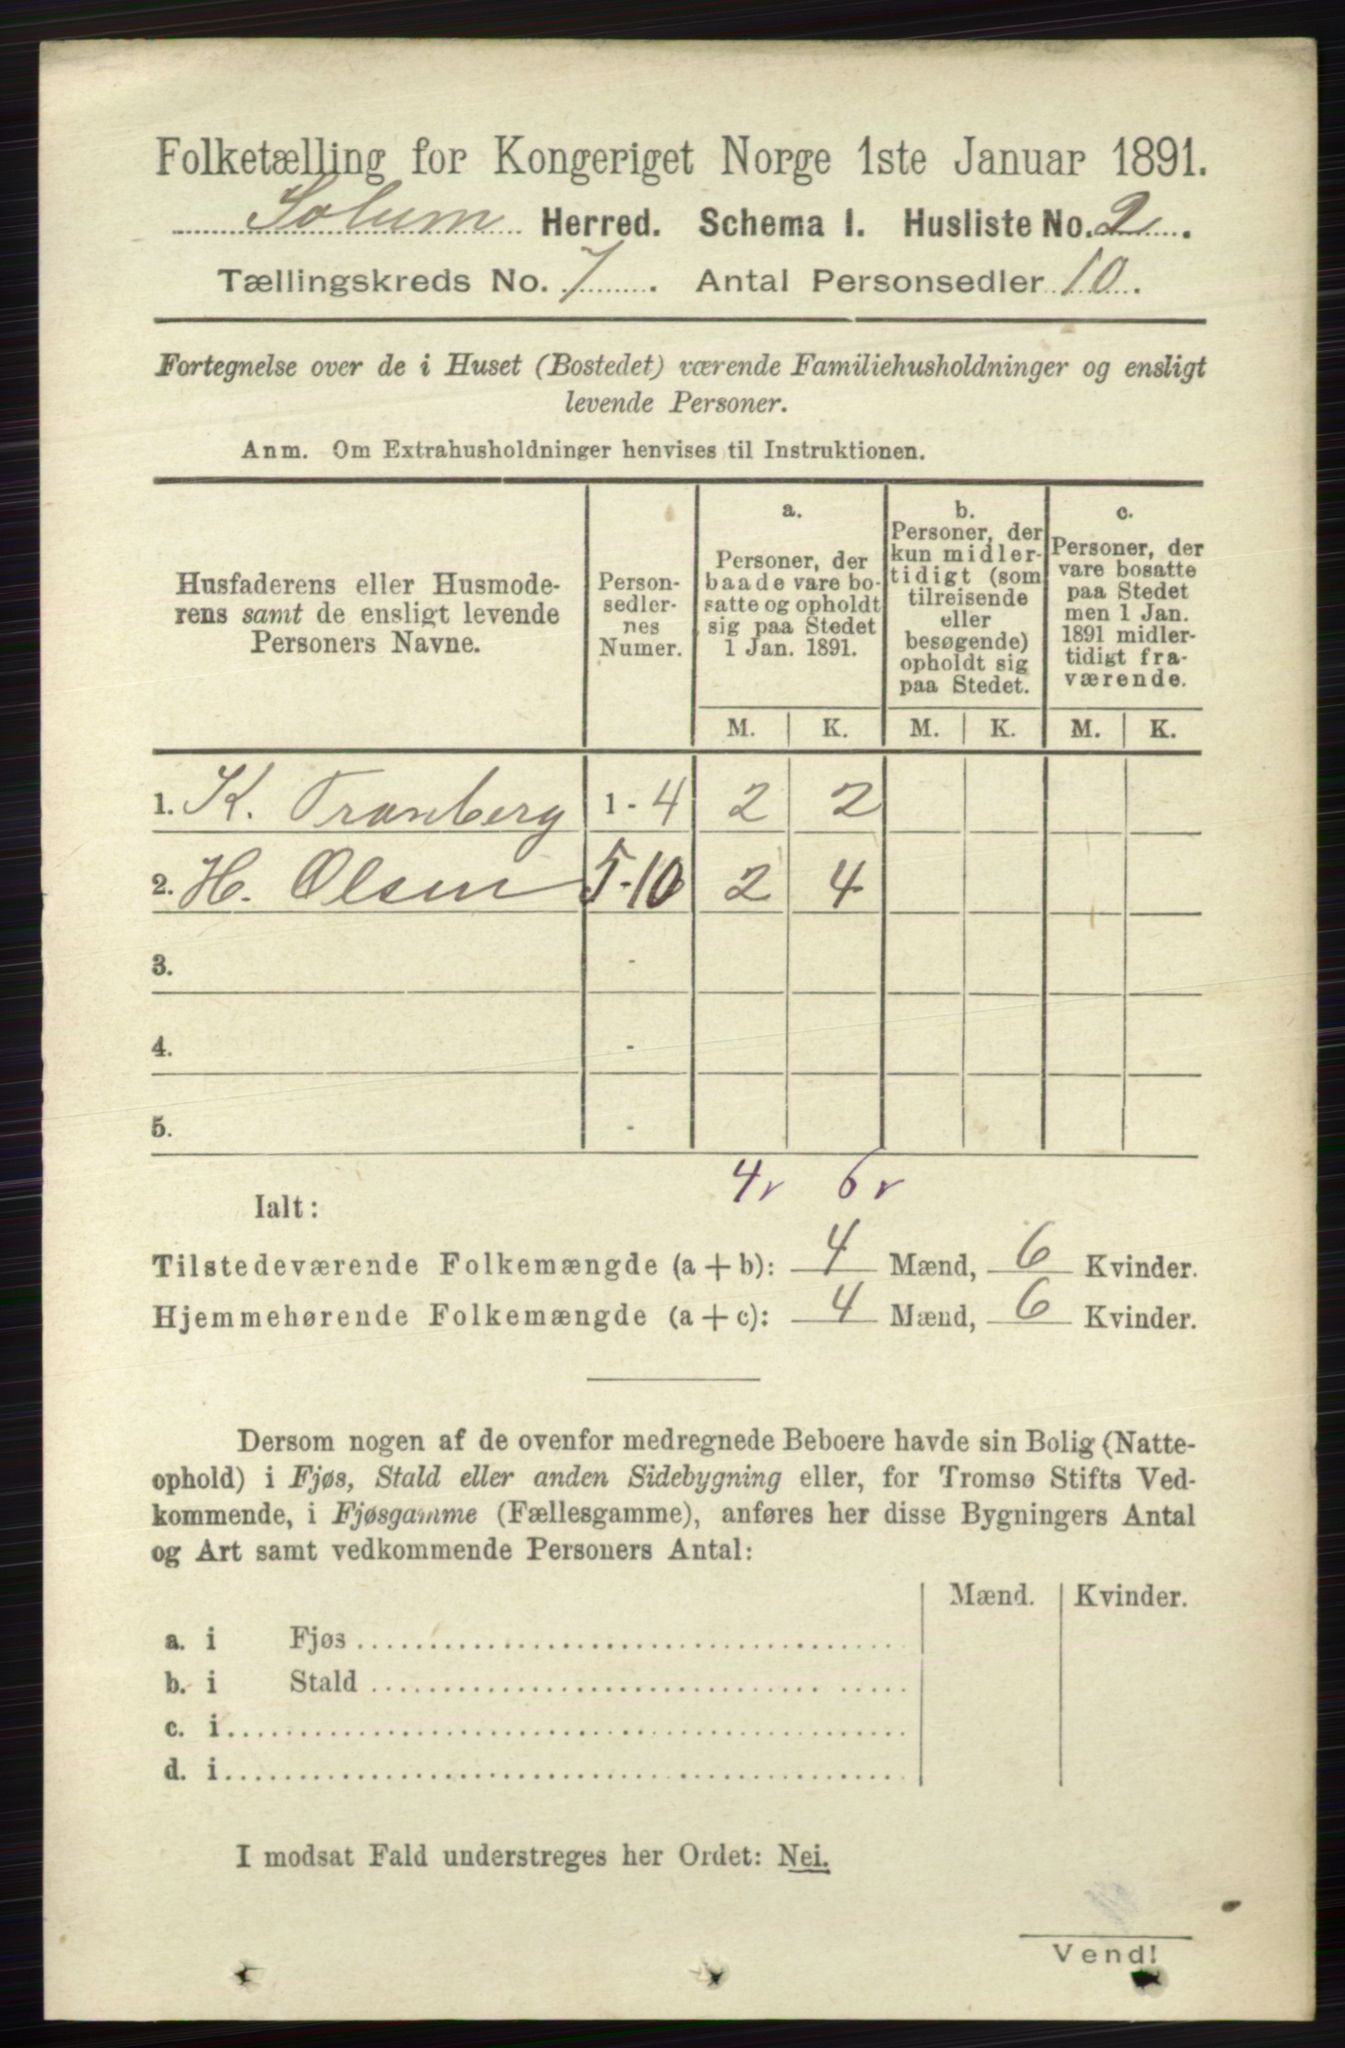 Folketælling for Kongeriget Norge 1ste Januar 1891.
Solum Herred. Schema I. Husliste No. 2.
Tællingskreds No. 7. Antal Personsedler 10.
Fortegnelse over de i Huset (Bostedet) værende Familiehusholdninger og ensligt
levende Personer.
Anm. Om Extrahusholdninger henvises til Instruktionen.
Husfaderens eller Husmode-
rens samt de ensligt levende
Personers Navne.
Person-
sedler-
nes
Numer.
a.
Personer, der
baade vare bo-
satte og opholdt
sig paa Stedet
1 Jan. 1891.
b.
Personer, der
kun midler-
tidigt (som
tilreisende
eller
besøgende)
opholdt sig
paa Stedet.
c.
Personer, der
vare bosatte
paa Stedet
men 1 Jan.
1891 midler-
tidigt fra-
værende.
M. K. M. K. M. K.
1. K. Tranberg 1 - 4 2 2
2. H. Olsen 5-10 2 4
3. -
4. -
5. -
4 6
Ialt:
Tilstedeværende Folkemængde (a + b): 4 Mænd, 6 Kvinder.
Hjemmehørende Folkemængde (a + c): 4 Mænd, 6 Kvinder.
Dersom nogen af de ovenfor medregnede Beboere havde sin Bolig (Natte-
ophold) i Fjøs, Stald eller anden Sidebygning eller, for Tromsø Stifts Ved-
kommende, i Fjøsgamme (Fællesgamme), anføres her disse Bygningers Antal
og Art samt vedkommende Personers Antal:
Mænd. Kvinder.
a. i Fjøs
b. i Stald
c. i
d. i
I modsat Fald understreges her Ordet: Nei.
Vend!